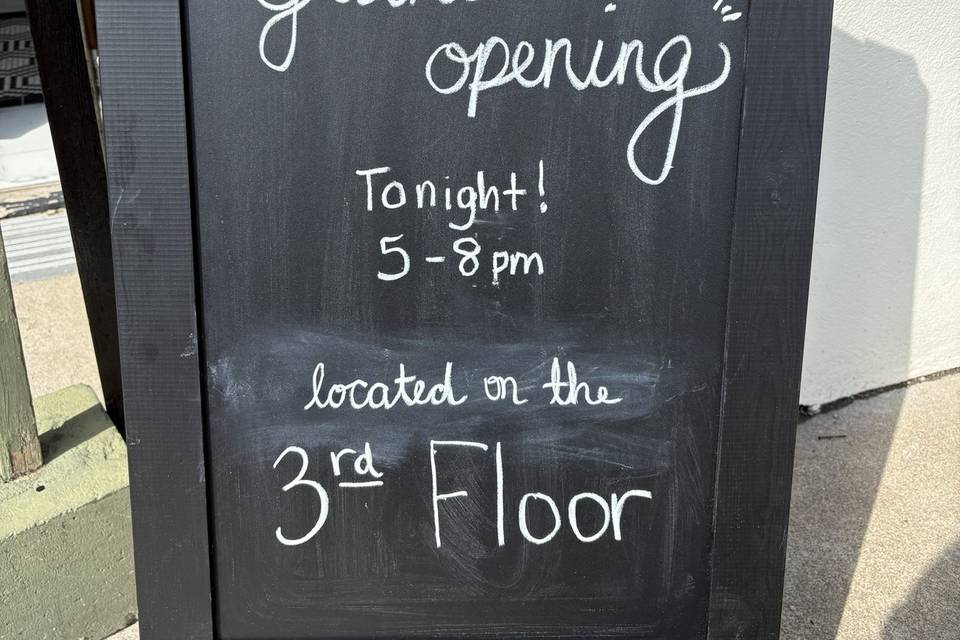 opening
Tonight!
5-8pm
located on the
3rd Floor